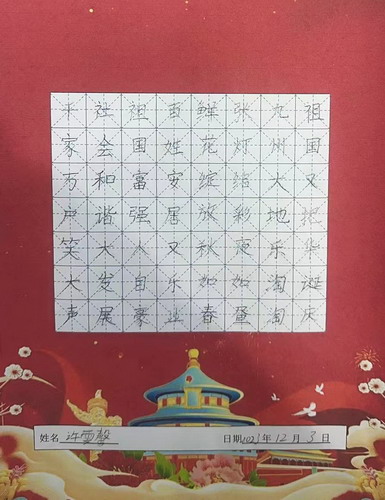 祖国又把华诞庆
九州大地乐淘淘
张灯结彩夜如昼
鲜花绽放秋如春
百姓安居又乐业
祖国富强人自豪
社会和谐大发展
家万户笑大声
姓名 许雪馨 日期2021年12月3日